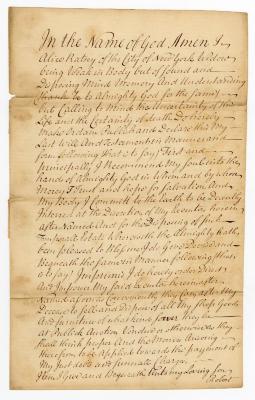 In the Name of God Amen I
Alice Ratsey of the City of New York Widow
being Weak in Body but of Sound and
Disposing Mind Memory And Understanding
thanks be to Almighty God for the same
but Calling to Mind the Uncertainty of this
Life and the Certainty of death Do hereby
make Ordain Publish and Declare this My
Last Will And Testament in Manner and
form following that is to say First and
Principally I Recommend My Soul into the
hands of Almighty God in Whom and by whom
Mercy I Trust and hope for Salvation And
My Body I Commit to the Earth to be Decently
Interred at the Discretion of My Executor
after Named And for the Disposing of such
Temporals that Wherewith the Almighty hath
been pleased to Bless me I do Give Devise and
Bequeath the same in Manner following that is
to say Imprimis I do hereby order Direct
and Impower My said Executor herein after
Named as soon as Conveniently they Can after My
Decease to sell and Dispose of all My Shop Goods
And furniture of what kind soever they be
at Publick Auction Vendue or otherwise as they
shall think proper And the Money Arising
therefrom to be Applied towards the payment of
My Just debts and funerall Charges
Item I Give and Bequeath unto my Loving Son